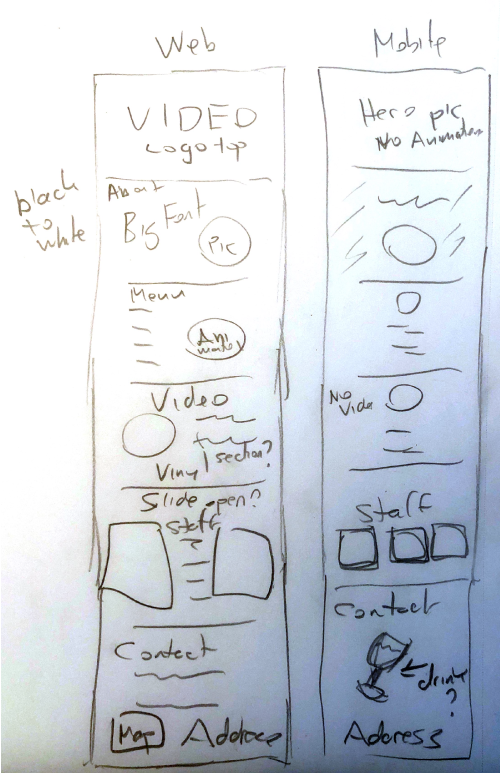 Web
VIDEO
Logo top
black
to
white
About
Big Font
Pic
Menu
Ani
mated
Video
Vinyl section?
Slide open?
Staff
Contact
Map Address
Mobile
Hero pic
No Animation
No
Video
Staff
Contact
drink
?
Address